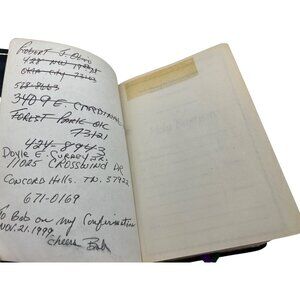 Robert J.
428 NW
Okla City 73103
568-8663
3409 E. CARDINAL
FOREST PARK OK
73121
424-8943
Doyle E. Jr.
11025 CROSSWIND DR
CONCORD Hills. TN. 37922
671-0169
To Bob on my Confirmation
NOV. 21. 1999
Cheers Bob